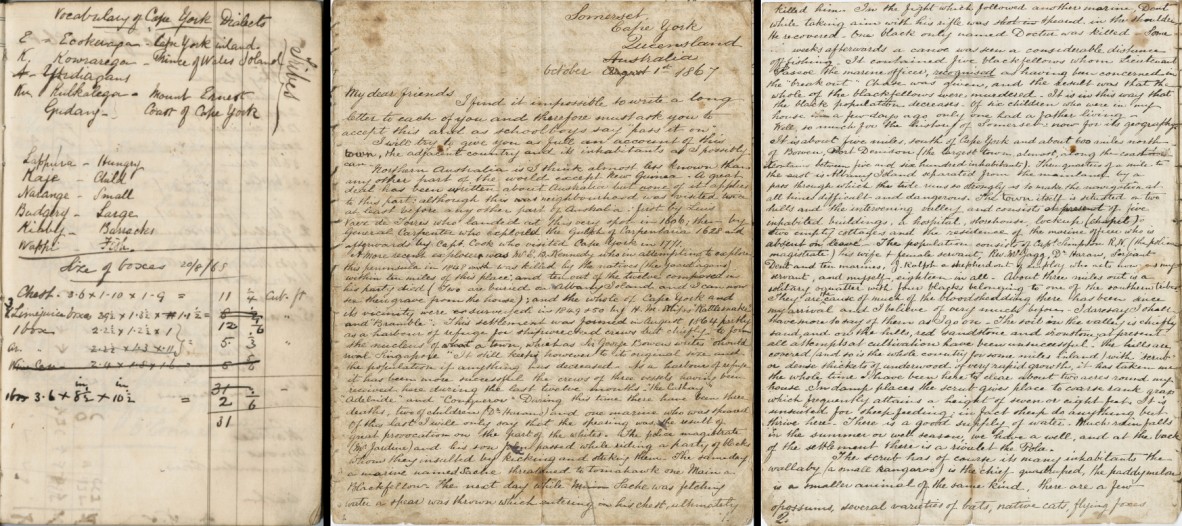 Vocabulary of Cape York Dialects
E - Eookwapa - Cape York inland
K Kowrarega - Prince of Wales Island
Ku Kulkalega - Mount Ernest
Gudang - Coast of Cape York
Tribes
Lappura - Hungry
Kaje - Child
Nalange - Small
Budgery - Large
Kibbly - Barracks
Wappi - Fish
Size of boxes 20/6/65
Chest - 3.6 x 1.10 x 1-9 = 11 Cub. ft
1 box
31
2 6
31
Somerset
Cape York
Queensland
Australia
October 1st 1867
My dear friends
I find it impossible to write a long
letter to each of you and therefore must ask you to
accept this and as schoolboys say "pass it on".
I will try to give you as full an account of this
town, the adjacent country and its inhabitants as I possibly
can.
Northern Australia is I think almost less known than
any other part of the world except New Guinea. A great
deal has been written about Australia but none of it applies
to this part: although this neighbourhood was visited
at least before any other part of Australia - first by Luis
Vaez de Torres who landed at this spot in 1606, then by
General Carpenter who explored the Gulph of Carpentaria 1628 and
afterwards by Capt. Cook who visited Cape York in 1771.
A more recent explorer was Mr E. B. Kennedy who in attempting to explore
this peninsula in 1848 was killed by the natives
within ten miles of this place; and ten out of the twelve composing
his party died (Two are buried on Albany Island and I can now
see their grave from the house); and the whole of Cape York and
its vicinity were surveyed in 1849 & 50 by H. M. Ships Rattlesnake
and Bramble. This settlement was formed in August 1864 partly
as a harbour of refuge for shipwrecked crews but chiefly to form
the nucleus of a town, which as Sir George Bowen writes "should
rival Singapore". It still keeps however to its original size and
the population if anything has decreased. As a harbour of refuge
it has been more successful the crews of three vessels having been
received here during the last twelve months. The
"Adelaide" and "Conqueror". During this time there have been three
deaths, two of children (Dr Haran's) and one marine who was speared
Of this last I will only say that the spearing was the result of
great provocation on the part of the whites. The police magistrate
(Mr Jardine) and his son, passed while riding a party of blacks
whom they insulted by kicking and striking them. The same day
a marine named Sache threatened to tomahawk one Main a
Blackfellow. The next day while Sache was fetching
water a spear was thrown which entering his chest, ultimately
killed him. In the fight which followed another marine, Dent
while taking aim with his rifle was speared in the shoulder
He recovered. One black only named Doctor was killed. Some
weeks afterwards a canoe was seen a considerable distance
off fishing. It contained five blackfellows whom Lieutenant
Pascoe the marine officer, recognised as having been concerned in
the "break out". Chase was given, and the result was that the
whole of the blackfellows were murdered. It is in this way that
the black population decreases. Of six children who were in my
house a few days ago only one had a father living.
Well, so much for the history of Somerset now for its geography.
It is about five miles, south of Cape York and about two miles north
of Bowen, Port Denison (the largest town, almost, along the
contains between five and six hundred inhabitants). The quarter of a mile to
the east is Albany Island separated from the mainland by a
pass through which the tide runs so strongly as to make the navigation at
all times difficult and dangerous. The town itself is situated on two
hills and the intervening valley and consists at present of five
inhabited buildings, a hospital, storehouse, lockup (chapel),
two empty cottages and the residence of the marine officer who is
absent on leave. The population consists of Capt Simpson R.N. (the police
magistrate) his wife & female servant, Revd Mr Jagg, Dr Haran, Serjeant
Dent and ten marines, J. K. a shepherd who acts as my
servant, and myself, eighteen in all. About three miles out is a
solitary squatter with four blacks belonging to one of the southern tribes.
They are cause of much of the bloodshedding there has been since
my arrival and I believe of very much before. I daresay I shall
have more to say of them as I go on. The soil in the valley is chiefly
sand, and on the hills, red sandstone and ironstone, at present
all attempts at cultivation have been unsuccessful. The hills are
covered (and so is the whole country for some miles inland) with "scrub"
or dense thickets of underwood of very rapid growth, it has taken me
the whole time I have been here to clear about two acres around my
house. In damp places the scrub gives place to coarse rank grass
which frequently attains a height of seven or eight feet. It is
unsuited for sheep feeding, in fact sheep do anything but
thrive here. There is a good supply of water. Much rain falls
in the summer or wet season, we have a well, and at the back
of the settlement there is a rivulet the Polo.
The scrub has of course its many inhabitants the
wallaby (a small kangaroo) is the chief quadruped, the paddymelon
is a smaller animal of the same kind, there are a few
opossums, several varieties of bats, native cats, flying foxes
2.